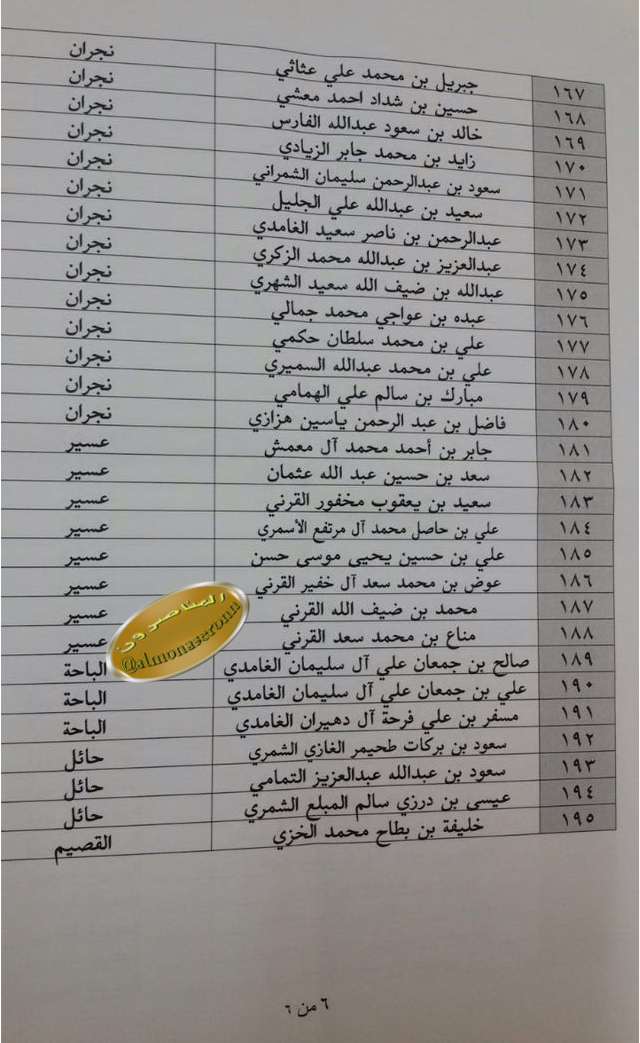 ١٦٧ جبريل بن محمد علي عثاثي نجران
١٦٨ حسين بن شداد احمد معشي نجران
١٦٩ خالد بن سعود عبدالله الفارس نجران
١٧٠ زايد بن محمد جابر الزيادي نجران
١٧١ سعود بن عبدالرحمن سليمان الشمراني نجران
١٧٢ سعيد بن عبدالله علي الجليل نجران
١٧٣ عبدالرحمن بن ناصر سعيد الغامدي نجران
١٧٤ عبدالعزيز بن عبدالله محمد الزكري نجران
١٧٥ عبدالله بن ضيف الله سعيد الشهري نجران
١٧٦ عبده بن عواجي محمد جمالي نجران
١٧٧ علي بن محمد سلطان حكمي نجران
١٧٨ علي بن محمد عبدالله السميري نجران
١٧٩ مبارك بن سالم علي الهمامي نجران
١٨٠ فاضل بن عبد الرحمن ياسين هزازي نجران
١٨١ جابر بن أحمد محمد آل معمش عسير
١٨٢ سعد بن حسين عبد الله عثمان عسير
١٨٣ سعيد بن يعقوب مخفور القرني عسير
١٨٤ علي بن حاصل محمد آل مرتفع الأسمري عسير
١٨٥ علي بن حسين يحيى موسى حسن عسير
١٨٦ عوض بن محمد سعد آل خفير القرني عسير
١٨٧ محمد بن ضيف الله القرني عسير
١٨٨ مناع بن محمد سعد القرني عسير
١٨٩ صالح بن جمعان علي آل سليمان الغامدي الباحة
١٩٠ علي بن جمعان علي آل سليمان الغامدي الباحة
١٩١ مسفر بن علي فرحة آل دهيران الغامدي الباحة
١٩٢ سعود بن بركات طحيمر الغازي الشمري حائل
١٩٣ سعود بن عبدالله عبدالعزيز التمامي حائل
١٩٤ عيسى بن درزي سالم المبلع الشمري حائل
١٩٥ خليفة بن بطاح محمد الخزي القصيم
المناصرون
@almonaseronn
٦ من ٦